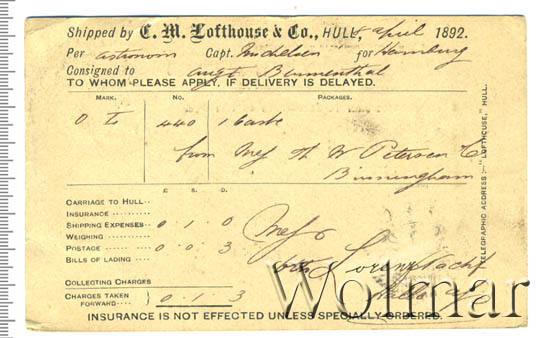 Shipped by C. M. Lofthouse & Co., HULL, 8 April 1892.
Per Astronom Capt. Michelsen for Hamburg
Consigned to Augt Blumenthal
TO WHOM PLEASE APPLY, IF DELIVERY IS DELAYED.
MARK. No. PACKAGES.
O to 440 1 Cask
from Mess Th W Petersen Co
Birmingham
£ S. D.
CARRIAGE TO HULL
INSURANCE
SHIPPING EXPENSES 0 1 0
WEIGHING
POSTAGE 0 0 3
BILLS OF LADING
Mess
Lorenz Nachf
COLLECTING CHARGES
CHARGES TAKEN FORWARD 0 1 3
INSURANCE IS NOT EFFECTED UNLESS SPECIALLY ORDERED.
TELEGRAPHIC ADDRESS:-"LOFTHOUSE," HULL.
Wolmar